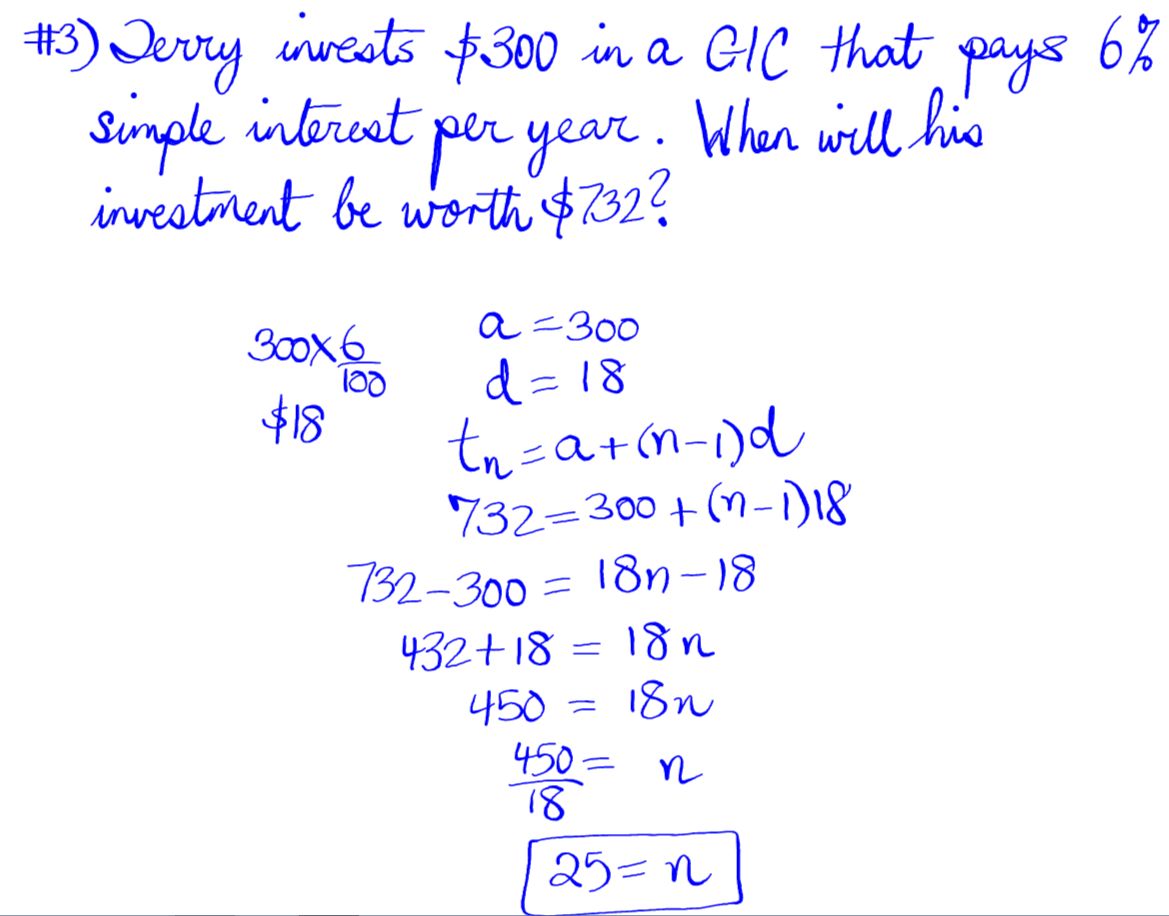 #3) Jerry invests $300 in a GIC that pays 6%
simple interest per year. When will his
investment be worth $732?
300×6/100
$18
a = 300
d = 18
tₙ = a + (n-1)d
732 = 300 + (n-1)18
732-300 = 18n - 18
432+18 = 18n
450 = 18n
450/18 = n
25 = n